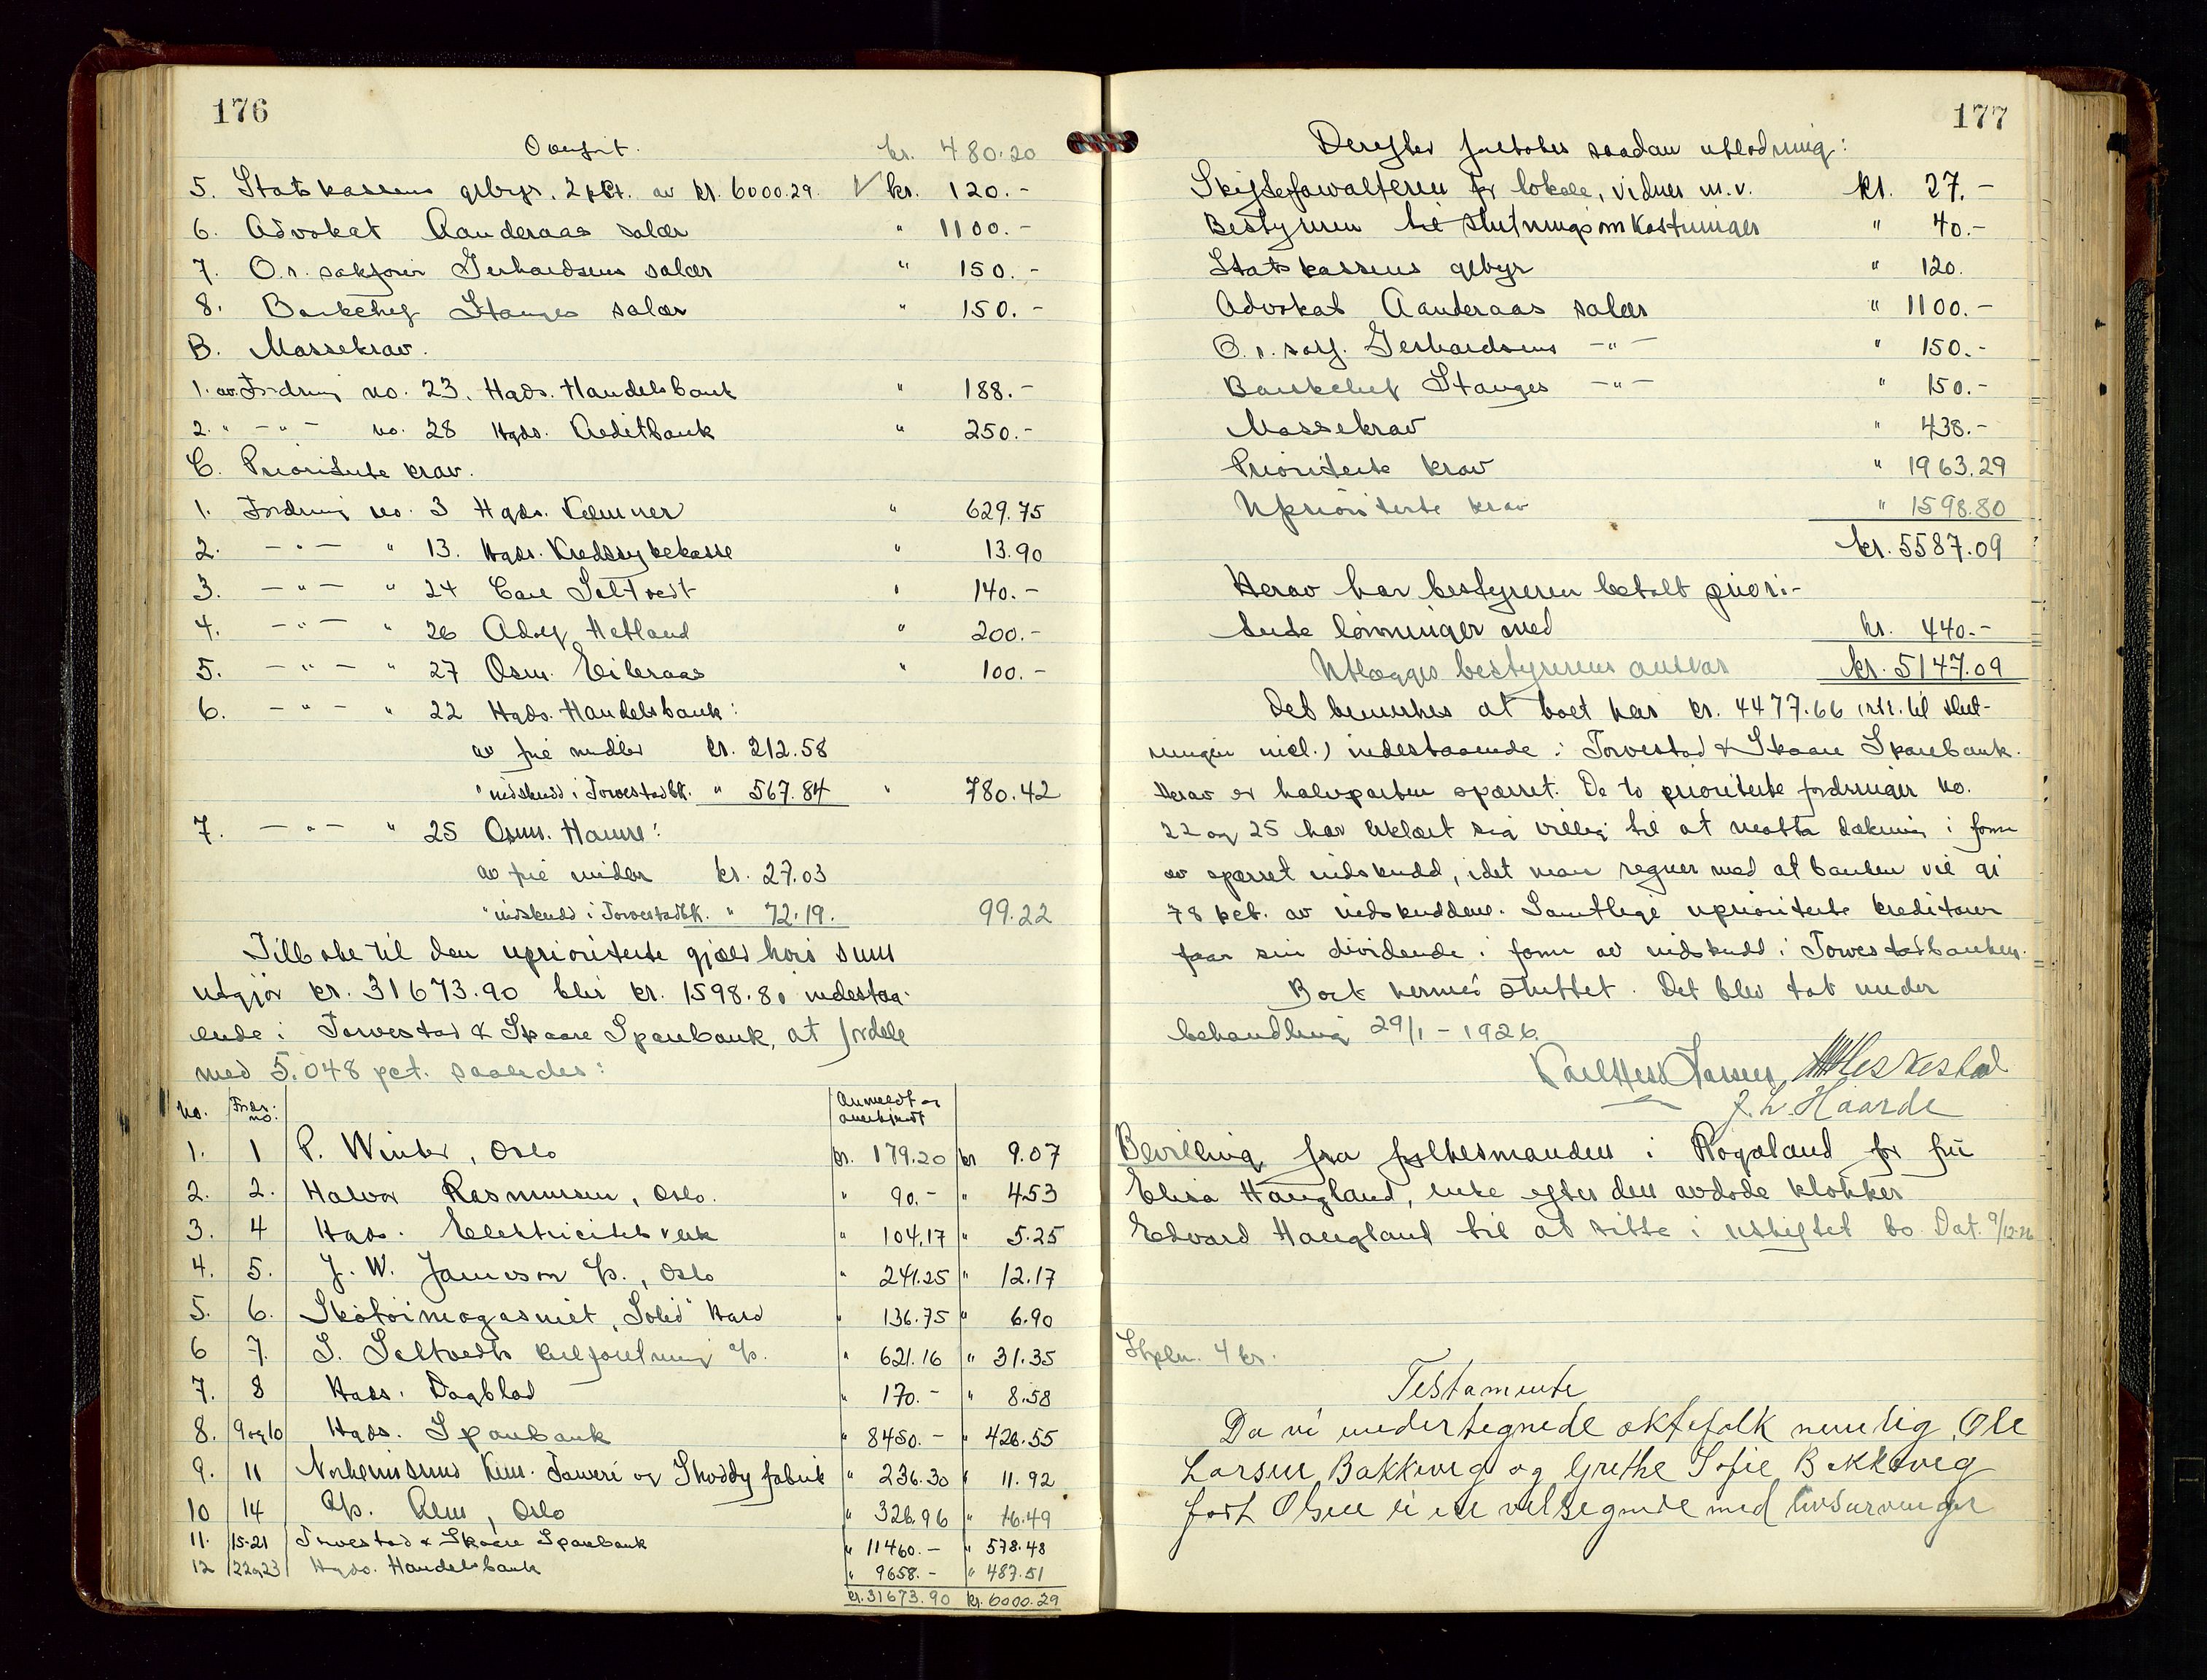 176
Overført. kr. 480.20
5. Statskassens gebyr. 2 pkt. av kr. 6000.29. kr. 120.-
6. Advokat Aanderaas salær " 1100.-
7. O.r. sakfører Gerhardsens salær " 150.-
8. Bankchef Stanges salær " 150.-
B. Massekrav.
1. av. Fordring no. 23. Hgds. Handelsbank " 188.-
2. " -"- no. 28 Hgds. Creditbank " 250.-
C. Prioriterte krav.
1. Fordring no. 3 Hgds. Kæmner " 629.75
2. -"- " 13. Hgds. Kredssykekasse " 13.90
3. -"- " 24 Carl Saltvedt " 140.-
4. -"- " 26 Adolf Hetland " 200.-
5. -"- " 27 Osm. Eileraas " 100.-
6. -"- " 22 Hgds. Handelsbank:
av frie midler kr. 212.58
" indskudd i Torvestadbk. " 567.84 " 780.42
7. -"- " 25 Osm. Hamre:
av frie midler kr. 27.03
" indskudd i Torvestadbk. " 72.19. 99.22
Tilbake til den uprioriterte gjæld hvis sum
utgjør kr. 31673.90 blir kr. 1598.80 indestaa-
ende i Torvestad & Skaare Sparebank, at fordele
med 5.048 pct. saaledes:
No. Fords. no. Anmeldt og anerkjendt
1. 1 P. Winter, Oslo kr. 179.20 kr 9.07
2. 2. Halvor Rasmussen, Oslo. " 90.- " 4.53
3. 4 Hgds. Elektricitetsverk " 104.17 " 5.25
4. 5. J. W. Jameson A/s., Oslo " 241.25 " 12.17
5. 6. Skotøimagasinet "Solid" Hgsd " 136.75 " 6.90
6 7. S. Saltvedts kulforretning A/s. " 621.16 " 31.35
7. 8 Hgds. Dagblad " 170.- " 8.58
8. 9 og 10 Hgds. Sparebank " 8450.- " 426.55
9. 11 Norheimsund Kem. Farveri og Shoddyfabrik " 236.30 " 11.92
10 14 A/s. Alm, Oslo " 326.96 " 16.49
11. 15-21 Torvestad & Skaare Sparebank " 11460.- " 578.48
12 22 og 23 Hgds. Handelsbank " 9658.- " 487.51
kr. 31673.90 kr. 6000.29
177
Derefter foretokes saadan utlodning:
Skifteforvalteren for lokale, vidner m.v. kr. 27.-
Bestyreren til slutningsomkostninger " 40.-
Statskassens gebyr " 120.
Advokat Aanderaas salær " 1100.-
O.r. sakf. Gerhardsens -"- " 150.-
Bankchef Stanges -"- " 150.-
Massekrav " 438.-
Prioriterte krav " 1963.29
Uprioriterte krav " 1598.80
kr. 5587.09
Herav har bestyreren betalt priori-
terte lønninger med kr. 440.-
Utlægges bestyrerens ansvar kr. 5147.09
Det bemerkes at boet har kr. 4477.66 (rtr. til slut-
ningen incl.) indestaaende i Torvestad & Skaare Sparebank.
Herav er halvparten sperret. De to prioriterte fordringer no.
22 og 25 har erklært sig villig til at motta dækning i form
av sperret indskudd, idet man regner med at banken vil gi
78 pct. av indskuddene. Samtlige uprioriterte kreditorer
faar sin dividende i form av indskudd i Torvestadbanken.
Boet hermed sluttet. Det blev tat under
behandling 29/1-1926.
J. L. Haarde
Bevilling fra fylkesmanden i Rogaland for fru
Elisa Haugland, enke efter den avdøde klokker
Edvard Haugland til at sitte i uskiftet bo. Dat. 9/12-26
Stpln. 4 kr.
Testamente
Da vi undertegnede ektefolk nemlig Ole
Larsen Bakkevig og Grethe Sofie Bakkevig
født Olsen ei er velsegnede med livsarvinger